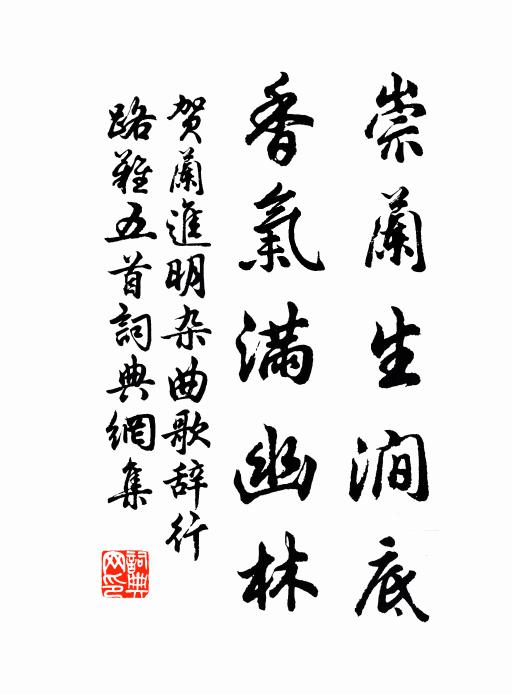 崇蘭生澗底
香氣滿幽林
贺蘭進明杂曲歌辞行
路難五首詞典網集
詞典网印